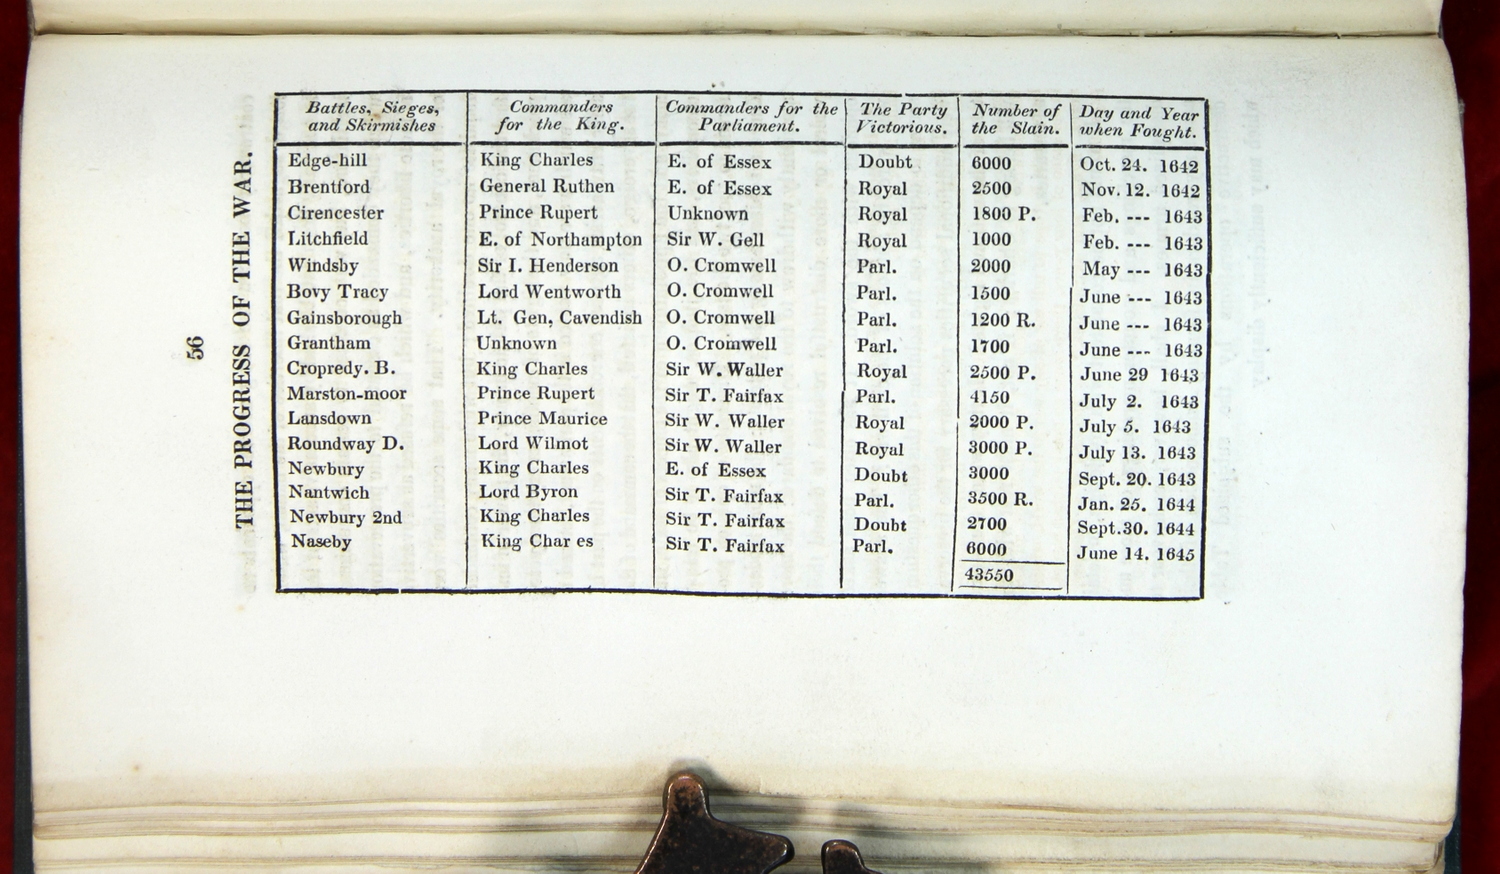 56
THE PROGRESS OF THE WAR.
Battles, Sieges, and Skirmishes | Commanders for the King. | Commanders for the Parliament. | The Party Victorious. | Number of the Slain. | Day and Year when Fought.
Edge-hill | King Charles | E. of Essex | Doubt | 6000 | Oct. 24. 1642
Brentford | General Ruthen | E. of Essex | Royal | 2500 | Nov. 12. 1642
Cirencester | Prince Rupert | Unknown | Royal | 1800 P. | Feb. --- 1643
Litchfield | E. of Northampton | Sir W. Gell | Royal | 1000 | Feb. --- 1643
Windsby | Sir I. Henderson | O. Cromwell | Parl. | 2000 | May --- 1643
Bovy Tracy | Lord Wentworth | O. Cromwell | Parl. | 1500 | June --- 1643
Gainsborough | Lt. Gen, Cavendish | O. Cromwell | Parl. | 1200 R. | June --- 1643
Grantham | Unknown | O. Cromwell | Parl. | 1700 | June --- 1643
Cropredy. B. | King Charles | Sir W. Waller | Royal | 2500 P. | June 29 1643
Marston-moor | Prince Rupert | Sir T. Fairfax | Parl. | 4150 | July 2. 1643
Lansdown | Prince Maurice | Sir W. Waller | Royal | 2000 P. | July 5. 1643
Roundway D. | Lord Wilmot | Sir W. Waller | Royal | 3000 P. | July 13. 1643
Newbury | King Charles | E. of Essex | Doubt | 3000 | Sept. 20. 1643
Nantwich | Lord Byron | Sir T. Fairfax | Parl. | 3500 R. | Jan. 25. 1644
Newbury 2nd | King Charles | Sir T. Fairfax | Doubt | 2700 | Sept.30. 1644
Naseby | King Char es | Sir T. Fairfax | Parl. | 6000 | June 14. 1645
43550